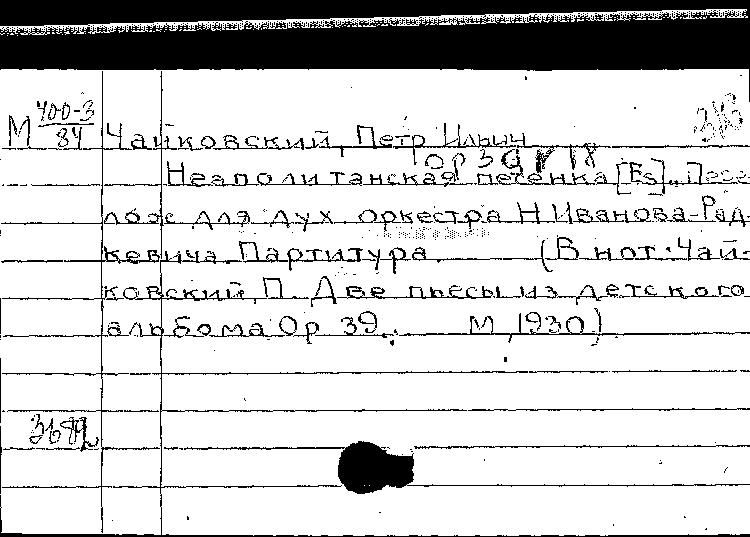 М 400-3/84 Чайковский, Петр Ильич
ор 39 № 18
Неаполитанская песенка [Es]. Пере-
лож для дух оркестра Н. Иванова-Рад-
кевича. Партитура. (В нот: Чай-
ковский, П. Две пьесы из детского
альбома Ор 39. М, 1930)